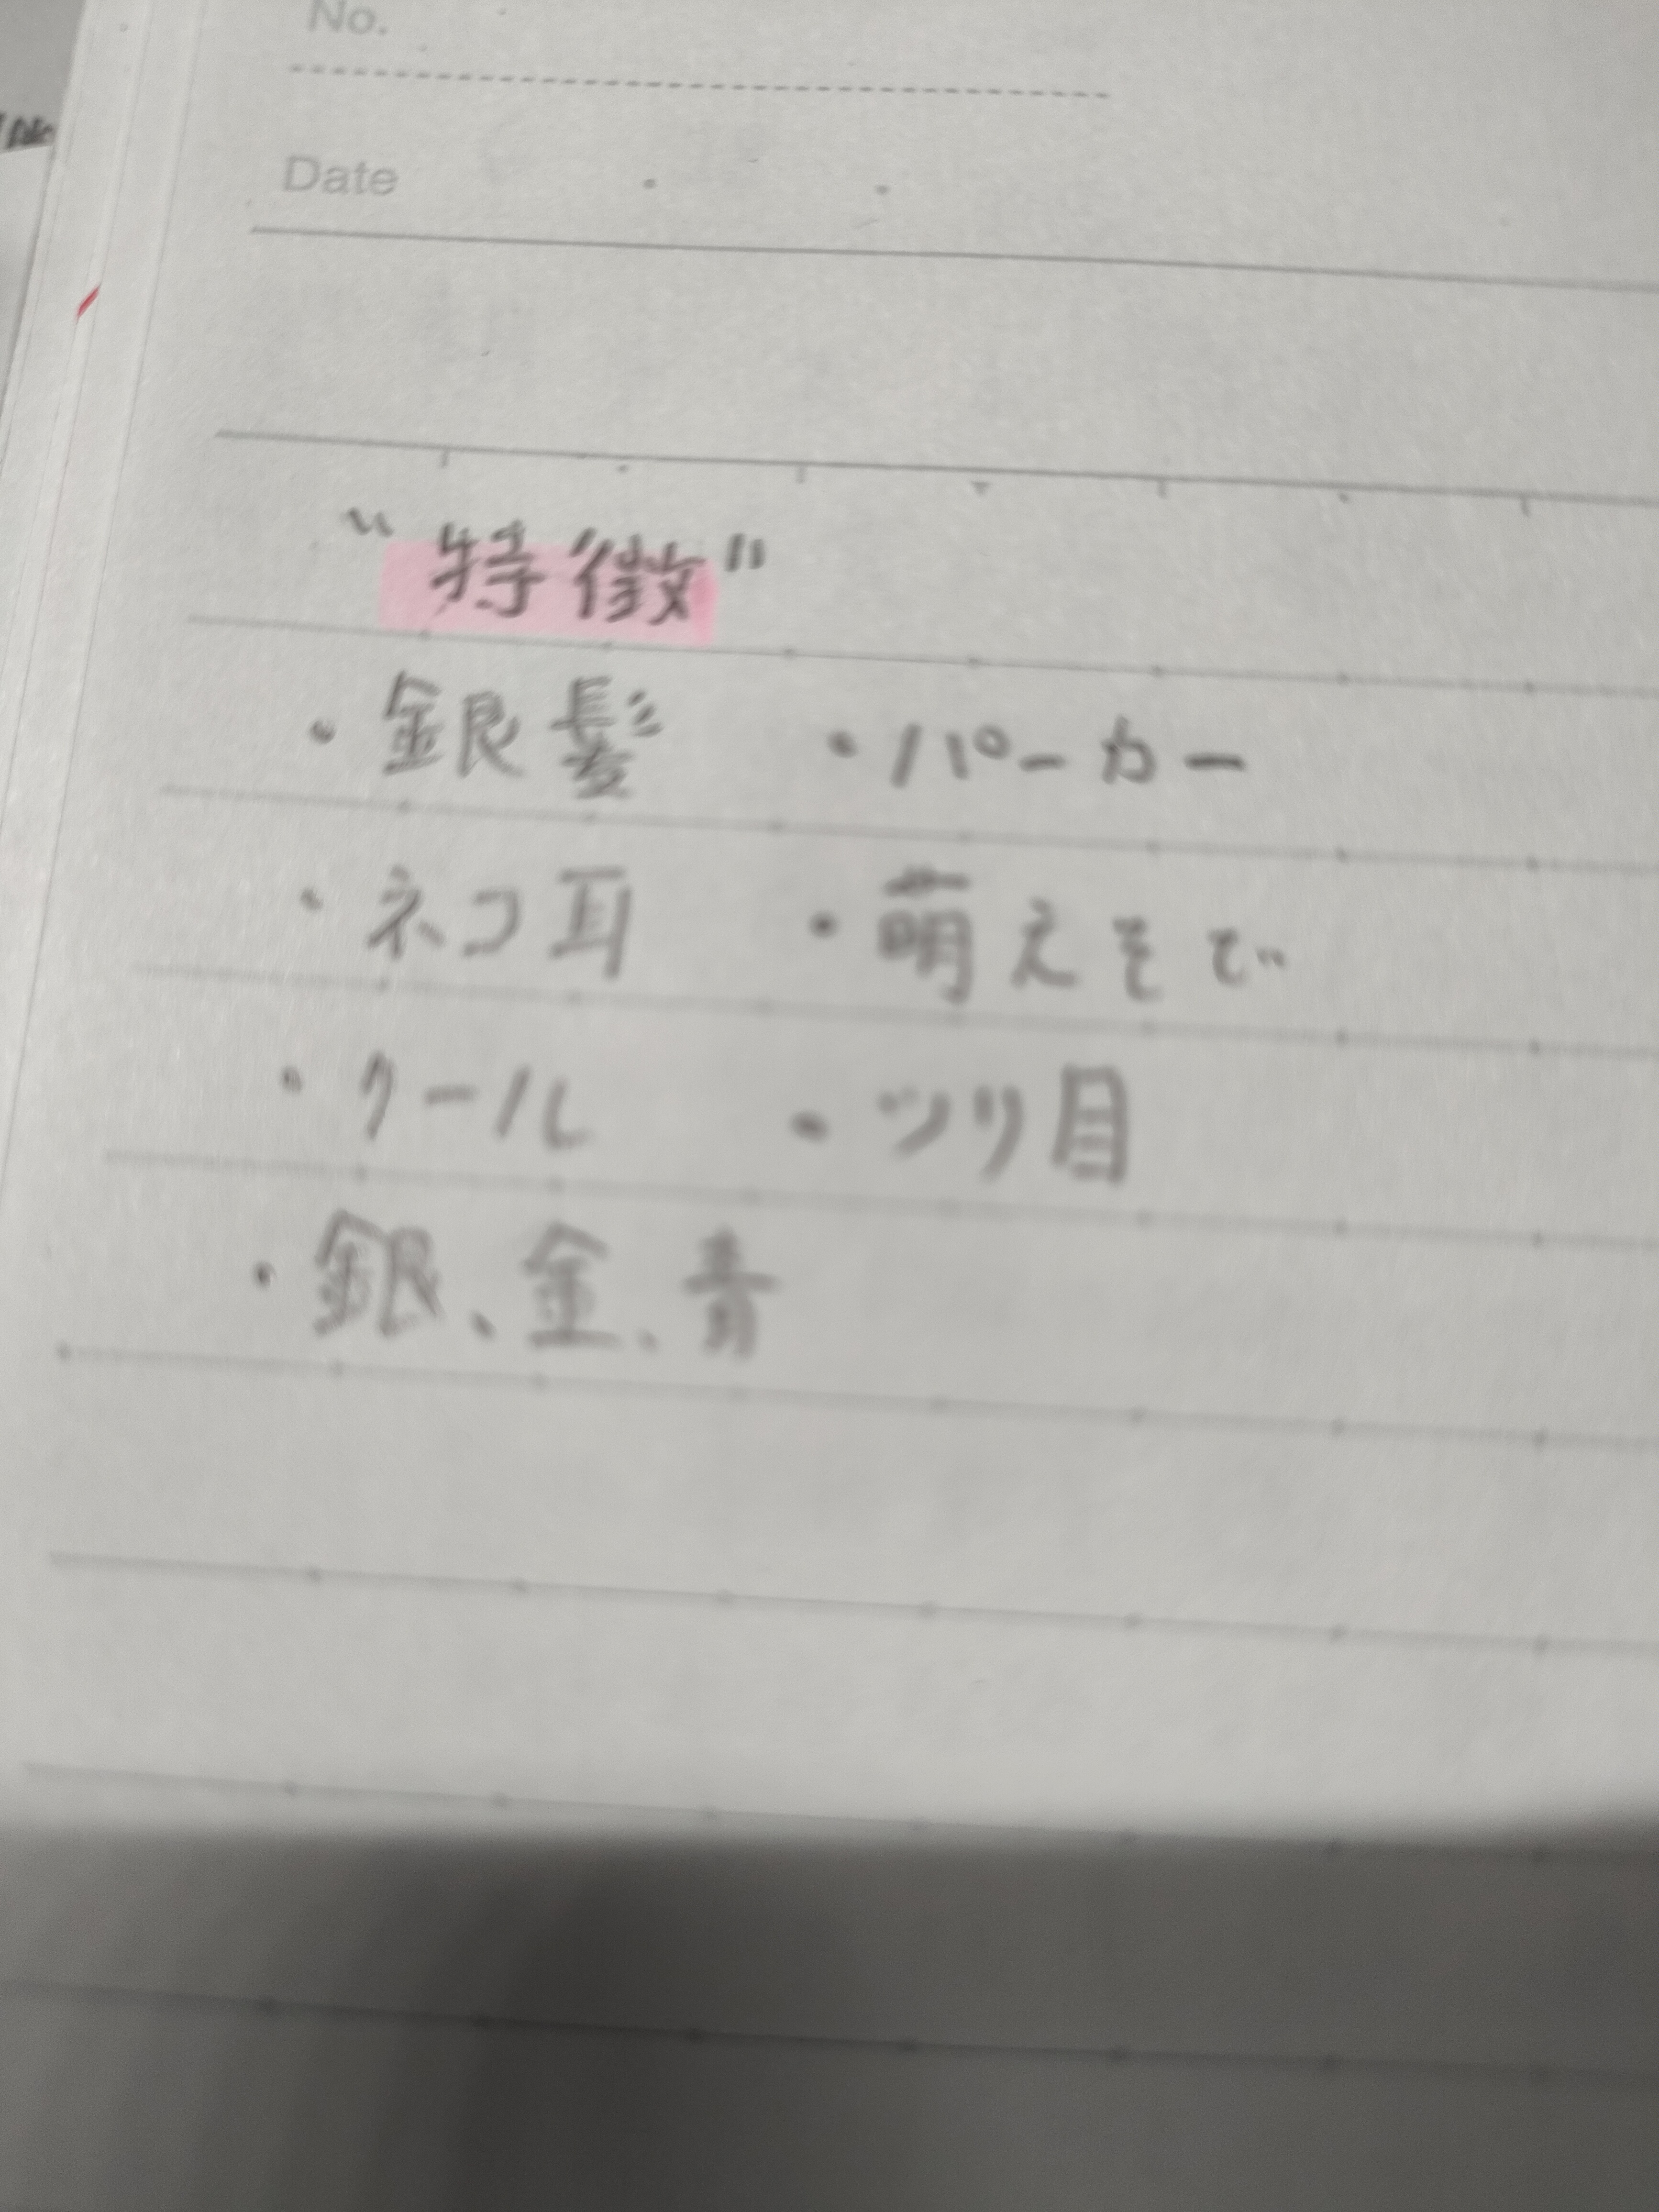 No.
Date
“特徴”
・銀髪 ・パーカー
・ネコ耳 ・萌えそで
・クール ・ツリ目
・銀、金、青